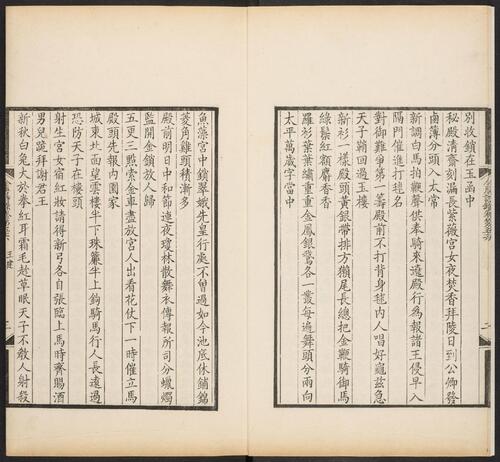 別收鎖在玉函中
秘殿清齋刻漏長紫微宮女夜焚香拜陵日到公卿發
鹵簿分頭入太常
新調白馬拍觀聲供奉騎來遶殿行為報諸王侵早入
隔門催進打毬名
對御難爭第一籌殿前不打背身毬内人唱好龜兹急
天子鞘回過玉樓
新衫一樣殿頭黃銀帶排方獺尾長總把金鞭騎御馬
綠鬃紅額麝香香
羅衫葉葉繡重重金鳳銀鵞各一叢每遍舞頭分兩向
太平萬歲字當中
魚藻宮中鎖翠娥先皇行處不曾過如今池底休鋪錦
菱角雞頭積漸多
殿前明日中和節連夜瓊林散舞衣傳報所司分蠟燭
監開金鎖放人歸
五更三點索金車盡放宮人出看花仗下一時催立馬
殿頭先報内園家
城東北面望雲樓半下珠簾半上鈎騎馬行人長遠過
恐防天子在樓頭
射生宮女宿紅妝請得新弓各自張臨上馬時齊賜酒
男兒跪拜謝君王
新秋白兔大於拳紅耳霜毛趁草眠天子不敎人射殺
王建